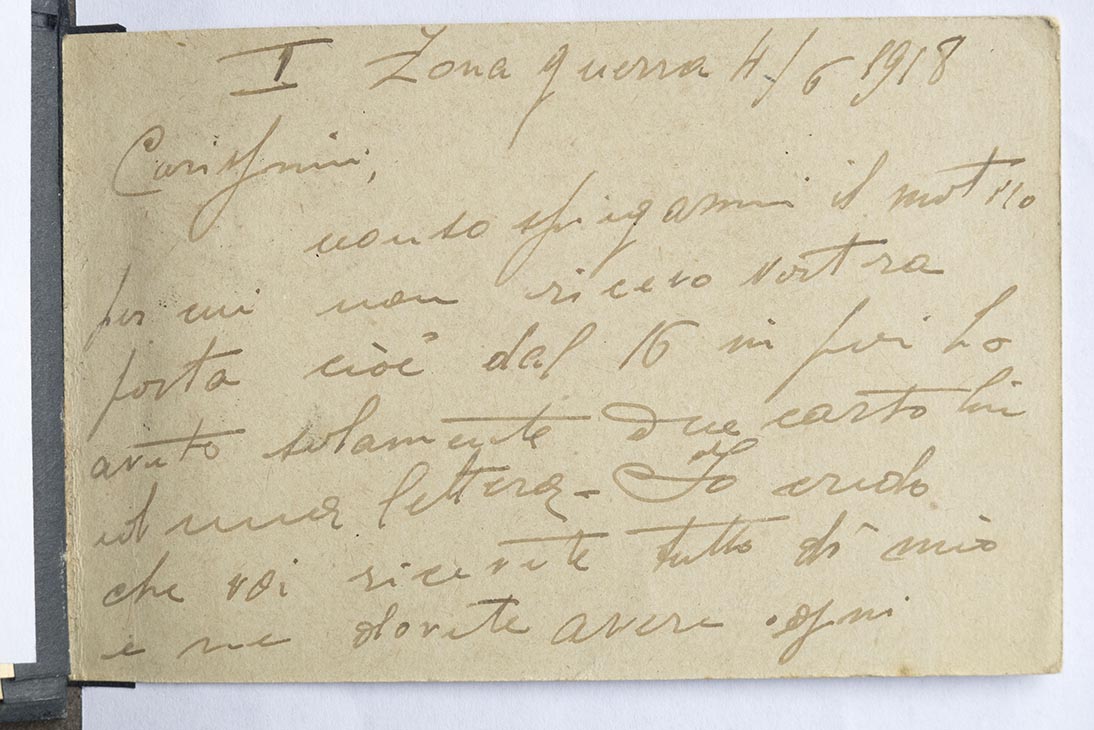 I Zona guerra 4/6 1918
Carissimi,
non so spiegarmi il motivo
per cui non ricevo vostra
posta cioè dal 16 in poi ho
avuto solamente due cartolin
ed una lettera - Io credo
che voi ricevete tutto di mio
e ne dovete avere ogni